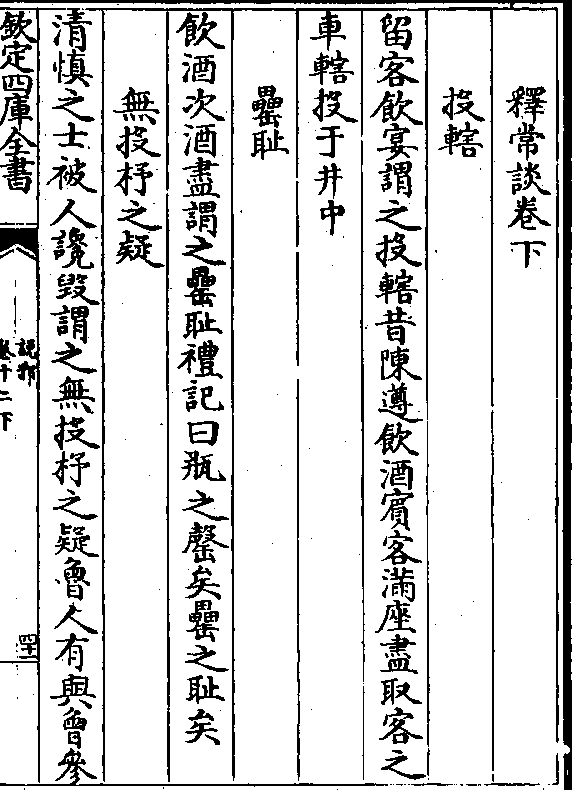 釋常談卷下
投轄
留客飲宴謂之投轄昔陳遵飲酒賓客滿座盡取客之
車轄投于井中
罍耻
飲酒次酒盡謂之罍耻禮記曰瓶之罄矣罍之耻矣
無投杼之疑
清慎之士被人讒毀謂之無投杼之疑魯人有與曾參
欽定四庫全書
說郛
卷十二下